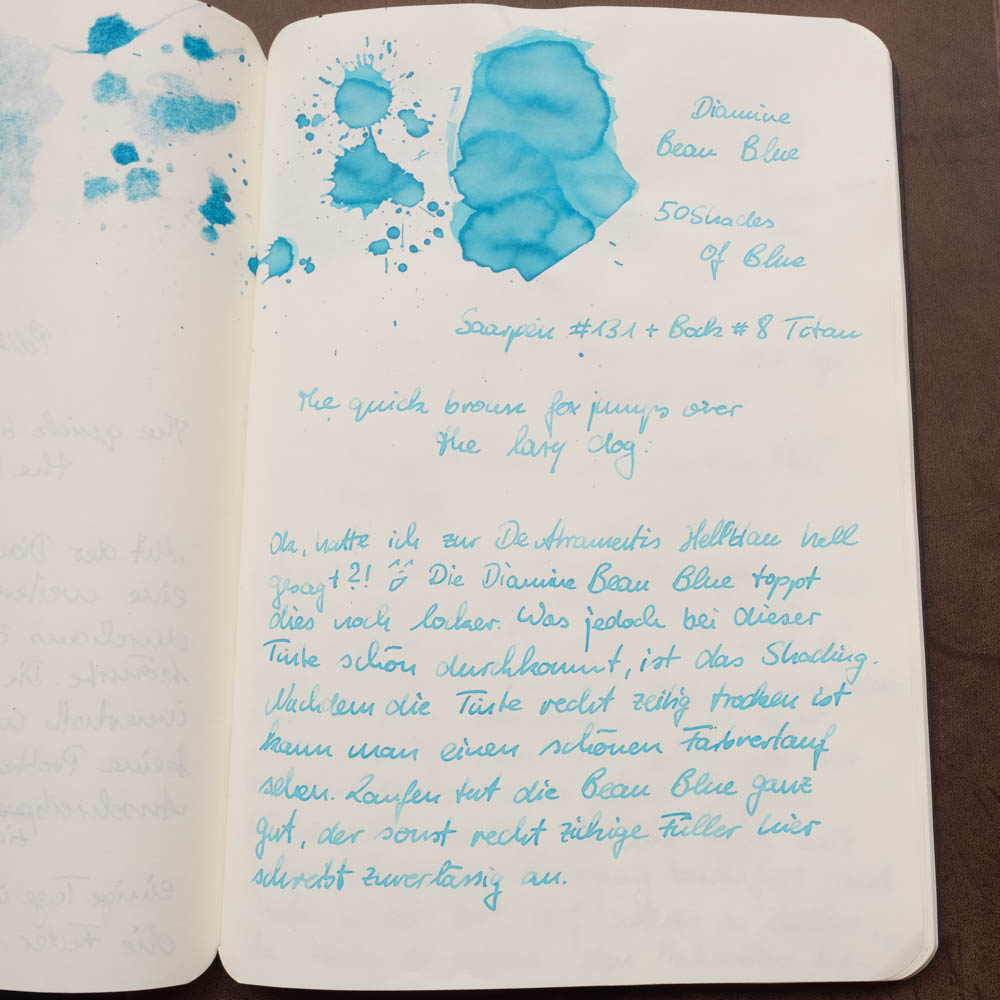 Diamine
Beau Blue
50Shades
Of Blue
Saarpen #131 + Bock #8 Titan
The quick brown fox jumps over
the lazy dog.
Ok, hatte ich zur DeAtramentis Hellblau hell
gesagt?! ^^ Die Diamine Beau Blue toppt
dies noch locker. Was jedoch bei dieser
Tinte schön durchkommt, ist das Shading.
Nachdem die Tinte recht zeitig trocken ist
kann man einen schönen Farbverlauf
sehen. Laufen tut die Beau Blue ganz
gut, der sonst recht zickige Füller hier
schreibt zuverlässig an.